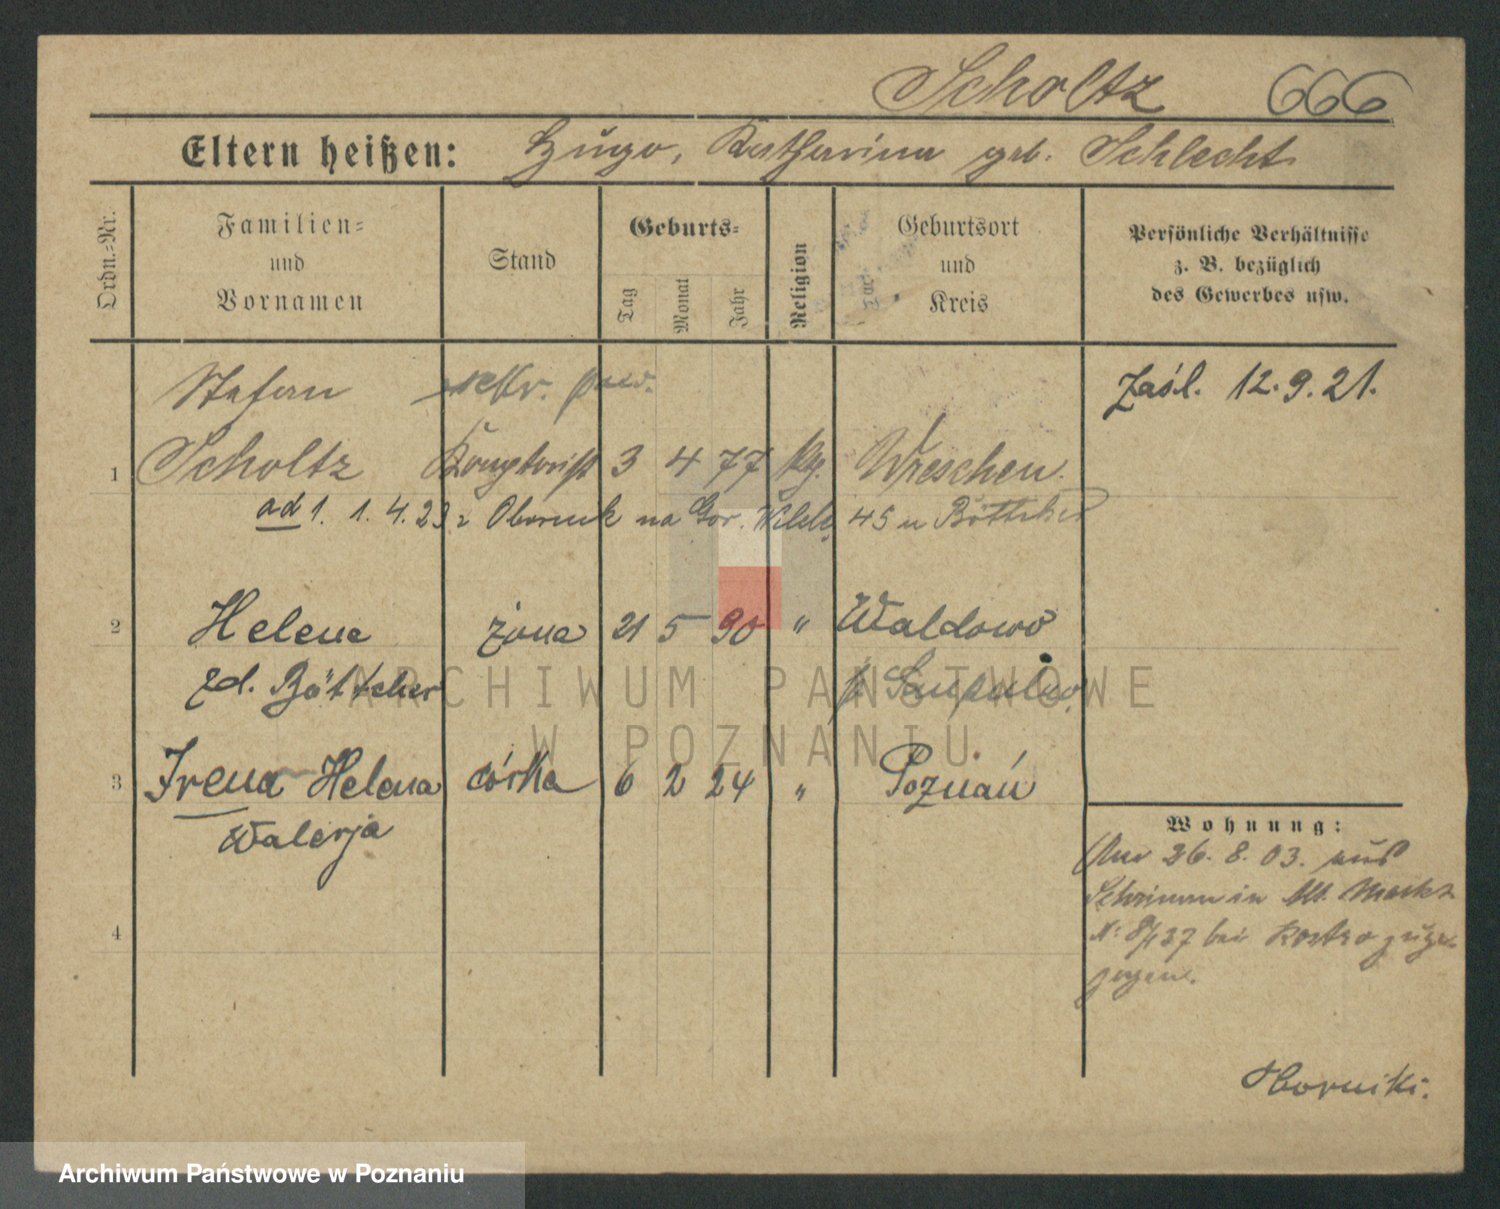 Scholtz 666
Eltern heißen: Hugo, Katharina geb. Schlecht
Ordn.-Nr.
Familien-
und
Vornamen
Stand
Geburts-
Tag
Monat
Jahr
Religion
Geburtsort
und
Kreis
Persönliche Verhältnisse
z. B. bezüglich
des Gewerbes usw.
Stefan
Zaśl. 12.9.21.
1 Scholtz 3 4 77 Wreschen
ad 1. 1.4.23 z Obornik na Gór. 45 u Böttcher
2 Helena żona 21 5 90 " Waldowo
zd. Böttcher
3 Irena Helena córka 6 2 24 " Poznań
Walerja
4
Wohnung:
26.8.03. aus
Schrimm in Alt. Markt
bei
zogen.
ARCHIWUM PAŃSTWOWE
W POZNANIU
Archiwum Państwowe w Poznaniu